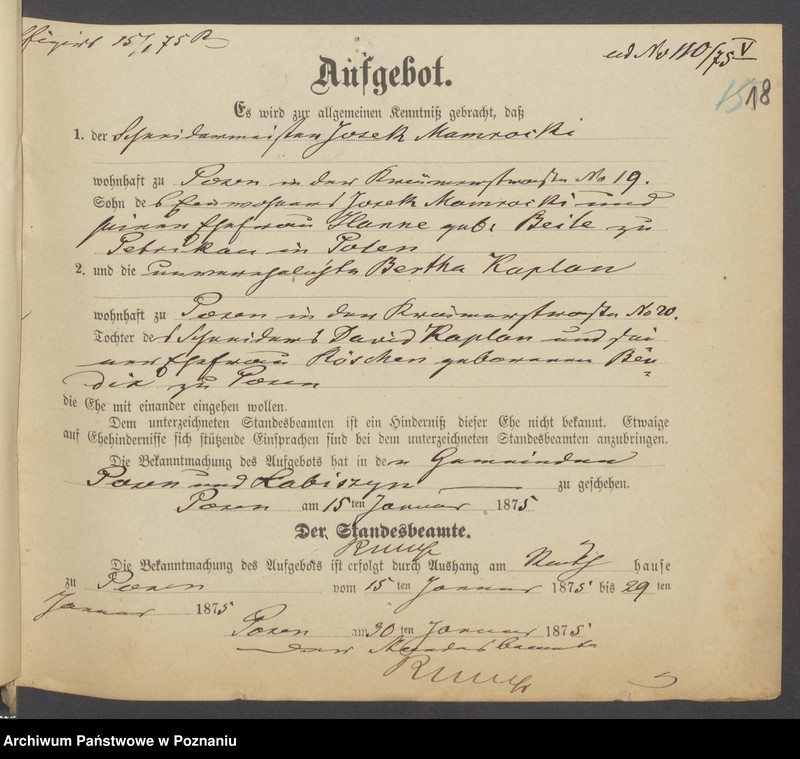 15/1 75
ad No 110/75 V
18
Aufgebot.
Es wird zur allgemeinen Kenntniß gebracht, daß
1. der Schneidermeister Josek Mamrocki
wohnhaft zu Posen in der Krämerstraße No 19.
Sohn des Einwohners Josek Mamrocki und
seiner Ehefrau Hanne geb. Beile zu
Petrikau in Polen
2. und die unverehelichte Bertha Kaplan
wohnhaft zu Posen in der Krämerstraße No 20.
Tochter des Schneiders David Kaplan und sei
ner Ehefrau Röschen geborenen Ben=
dix zu Posen
die Ehe mit einander eingehen wollen.
Dem unterzeichneten Standesbeamten ist ein Hinderniß dieser Ehe nicht bekannt. Etwaige
auf Ehehindernisse sich stützende Einsprachen sind bei dem unterzeichneten Standesbeamten anzubringen.
Die Bekanntmachung des Aufgebots hat in den Gemeinden
Posen und Labiszyn zu geschehen.
Posen am 15 ten Januar 1875
Der Standesbeamte.
Die Bekanntmachung des Aufgebots ist erfolgt durch Aushang am Rath hause
zu Posen vom 15 ten Januar 1875 bis 29 ten
Januar 1875
Posen am 30 ten Januar 1875
Der Standesbeamte
Archiwum Państwowe w Poznaniu